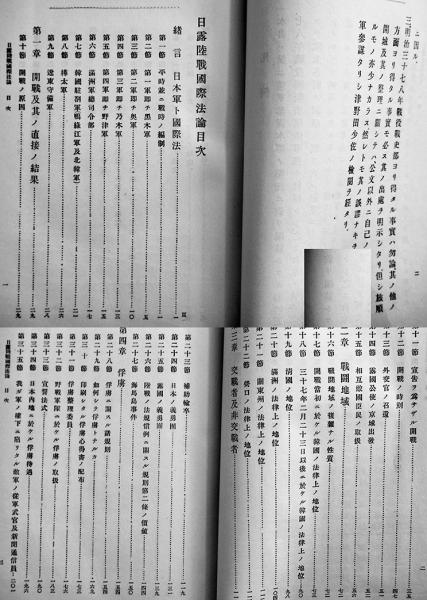 二因ル、
三、明治三十七八年戰役戰史部ヨリ得タル事實ハ勿論、其ノ他ノ
方面ヨリ得タル事實モ必ス其ノ出處ヲ明示シタリ、但シ旅順
開城及其ノ整理ニ關シテハ、公文以外ニ自己ノ
ルモノ亦少ナカラス、然レトモ其ノ誤謬ナキヲ
軍參謀タリシ津野田少佐ノ檢閲ヲ經タリ、
二
日露陸戰國際法論目次
緒言 日本軍ト國際法
第一節 平時並ニ戰時ノ編制
第二節 第一軍即チ黑木軍
第三節 第二軍即チ奥軍
第四節 第三軍即チ乃木軍
第五節 第四軍即チ野津軍
第六節 滿洲軍總司令部
第七節 韓國駐剳軍(鴨綠江軍及北韓軍)
第八節 樺太軍
第九節 遼東守備軍
第一章 開戰及其ノ直接ノ結果
第十節 開戰ノ原因
日露陸戰國際法論 目次
一
十一節 宣告ヲ爲サザル開戰
十二節 開戰ノ時刻
十三節 外交官ノ召還
十四節 露國公使ノ京城出發
十五節 相互敵國臣民ノ取扱
二章 戰鬪地域
十六節 戰鬪地域ノ複雜ナル性質
十七節 開戰當初ニ於ケル韓國ノ法律上ノ地位
十八節 三十七年二月二十三日以後ニ於ケル韓國ノ法律上ノ地位
十九節 清國ノ地位
二十節 滿洲ノ法律上ノ地位
二十一節 關東州ノ法律上ノ地位
二十二節 營口ノ法律上ノ地位
三章 交戰者及非交戰者
二
二十三節 補助輸卒
二十四節 日本ノ義勇團
二十五節 露國ノ義勇團
二十六節 陸戰ノ法規慣例ニ關スル規則第二條ノ價値
二十七節 海馬島事件
第四章 俘虜
二十八節 俘虜ニ關スル諸規則
二十九節 如何ナル俘虜トナルカ
三十節 印刷セル俘虜心得書ノ配布
三十一節 俘虜整理委員
三十二節 野戰軍隊ニ於ケル俘虜ノ取扱
三十三節 宣誓法式
三十四節 日本内地ニ於ケル俘虜待遇
三十五節 我カ軍ノ權下ニ陷リタル敵軍ノ從軍武官及新聞通信員
日露陸戰國際法論 目次